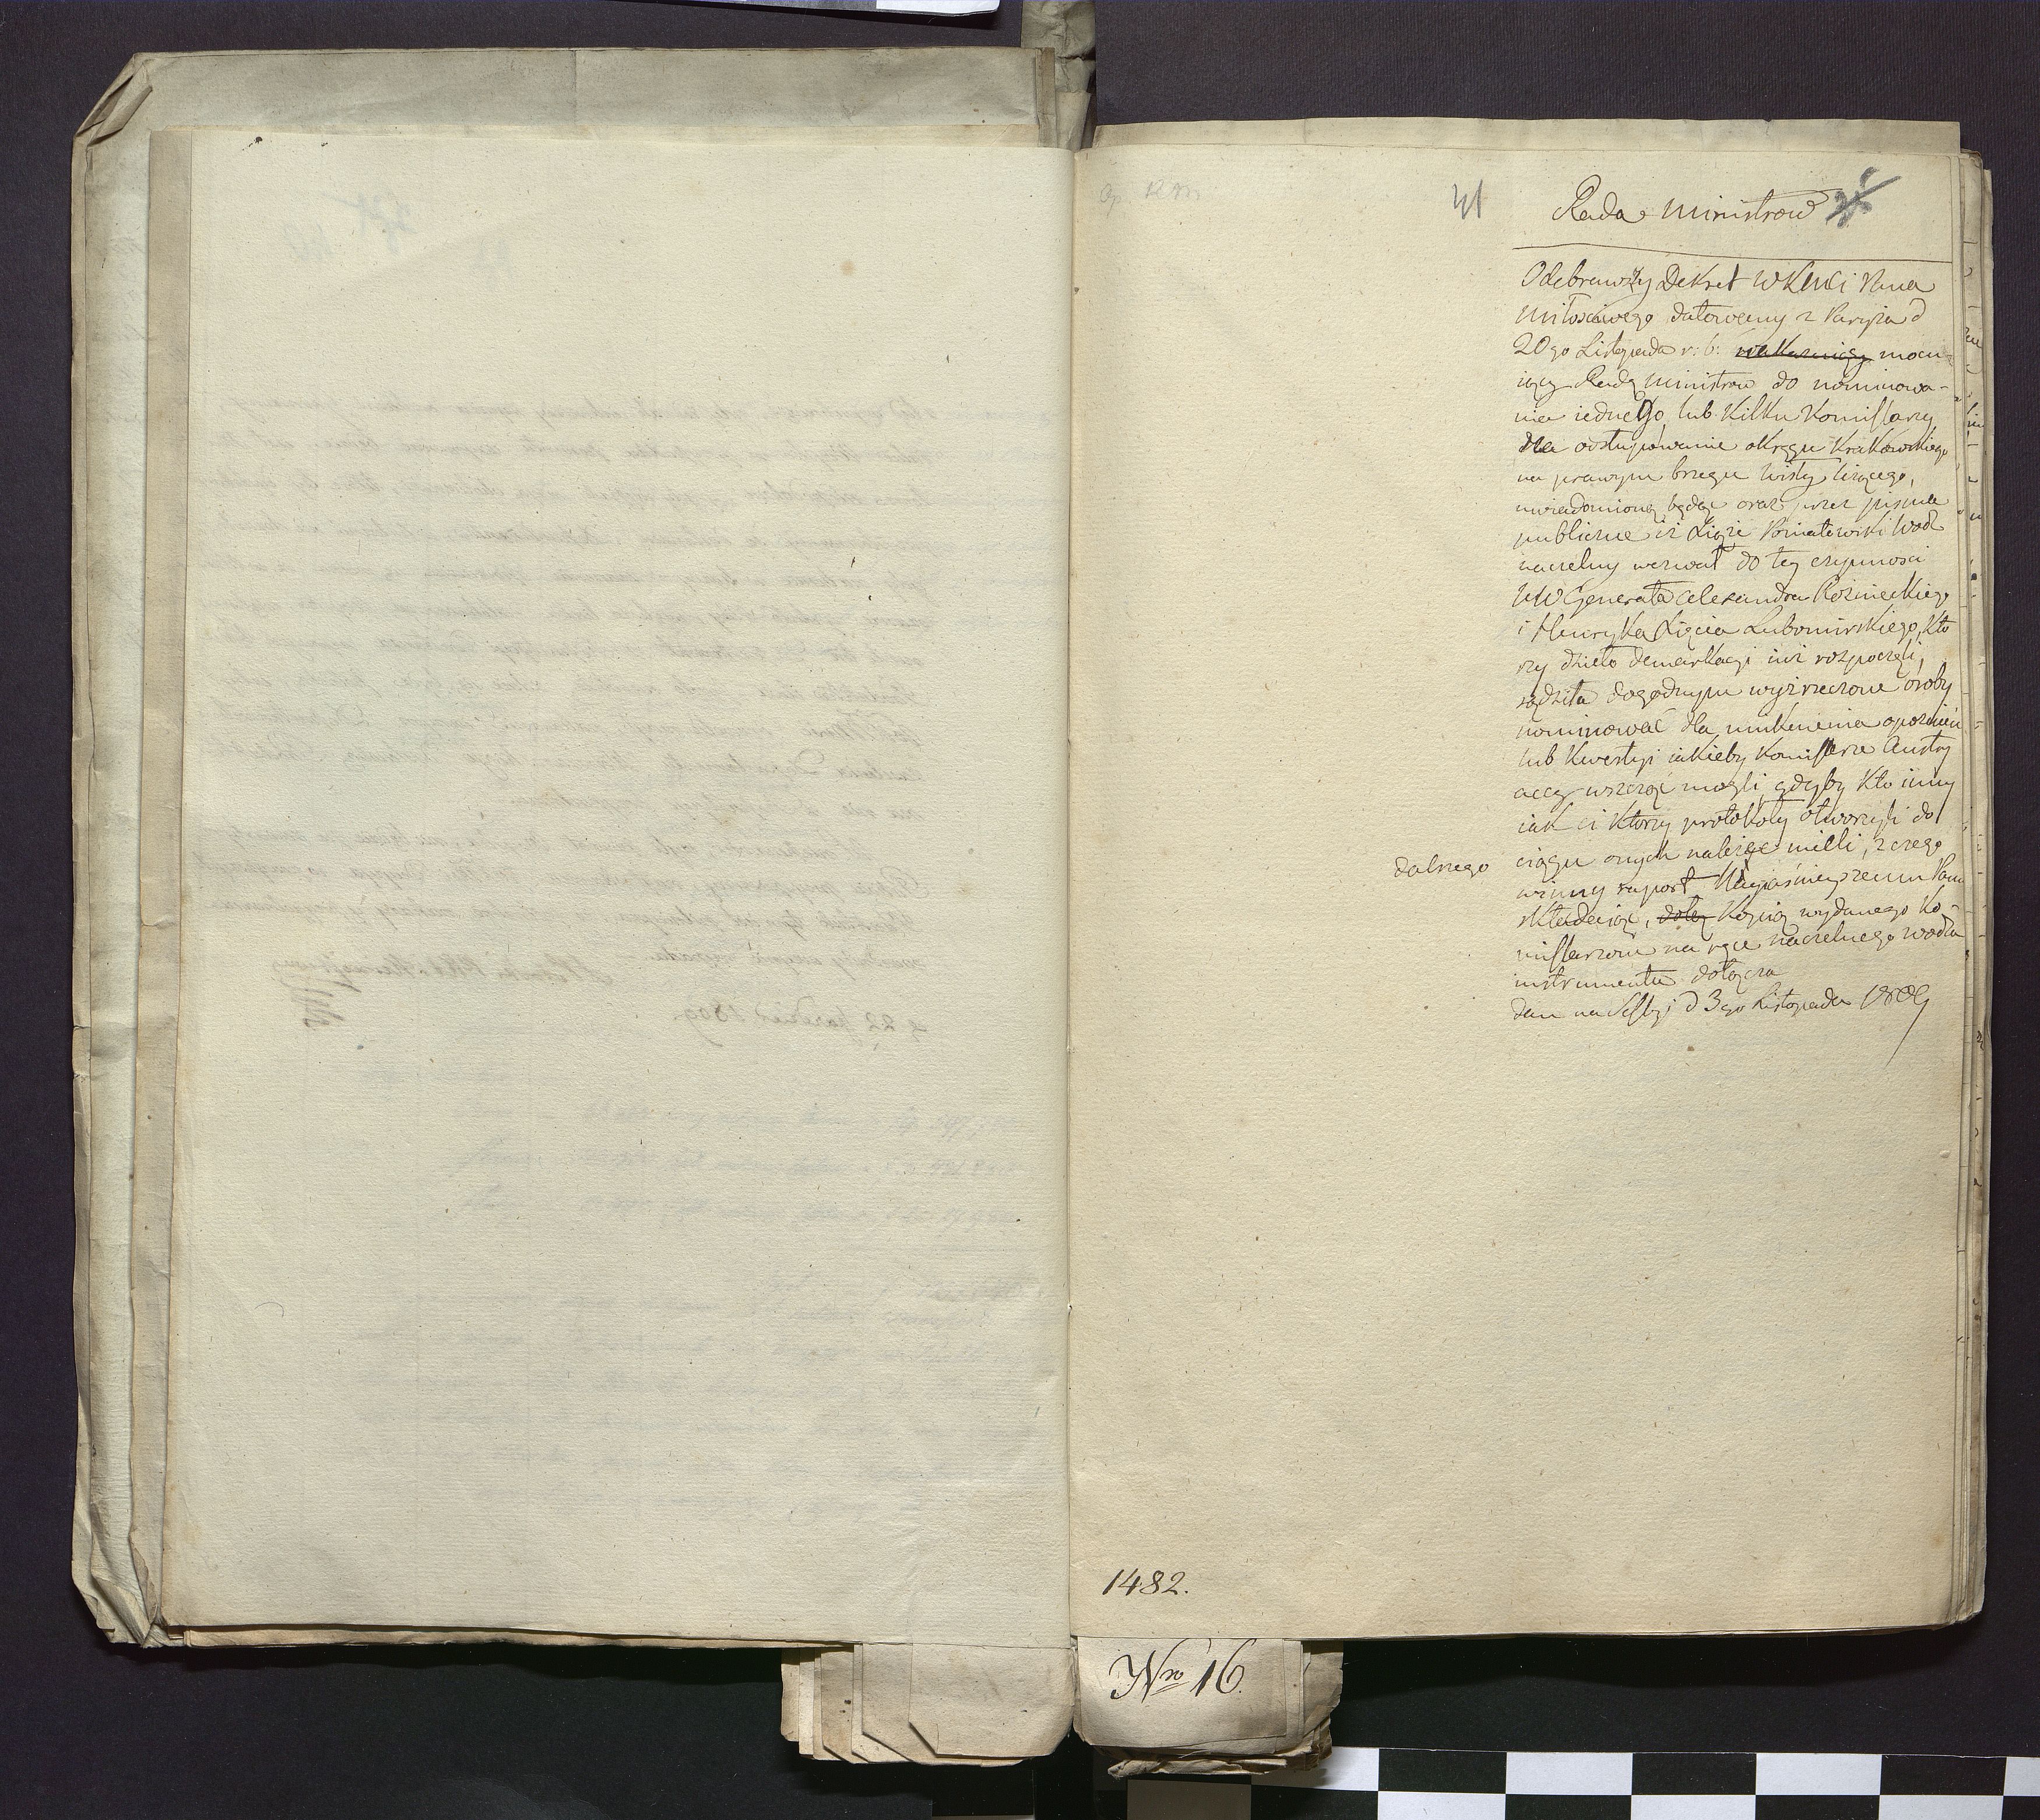 41
Rada Ministrow
Odebrawszy Dekret WKMci Pana
Miłościwego datowany z Paryża d
20go Listopada r: b: mocu-
iący Radę Ministrow do nominowa-
nia iednego lub kilku Komissarzy
dla odstupowania okręgu Krakowskiego
na prawym brzegu Wisły leżącego,
uwiadomioną będąc oraz przez pisma
publiczne iż Xiąże Poniatowski Wodz
naczelny wezwał do tey czynnosci
WW Generała Alexandra Rożnieckiego
i Henryka Xięcia Lubomirskiego, kto
rzy dzieło demarkacyi iuż rozpoczęli,
sądziła dogodnym wyż rzeczone osoby
nominować dla uniknienia opoźnień
lub kwestyi iakieby Komissarze Austry
accy wszcząć mogli, gdyby kto inny
iak ci ktorzy protokoły otworzyli do
dalszego ciągu onych należeć mieli, z czego
winny raport Nayiaśnieyszemu Panu
składaiąc, kopią wydanego Ko-
missarzom na ręce naczelnego wodza
instrumentu dołącza
Dan na Sessyi d 3go Listopada 1809
1482.
Nro 16.